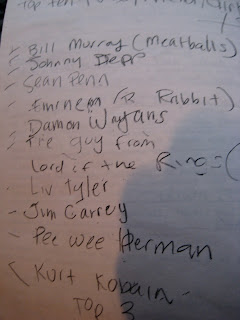 Top ten
- Bill Murray (Meatballs)
- Johnny Depp
- Sean Penn
- Eminem (R Rabbit)
- Damon Wayans
- The guy from
Lord if the Rings (
- Liv Tyler
- Jim Carrey
- Pee wee Herman
\ Kurt Kobain -
Top 3